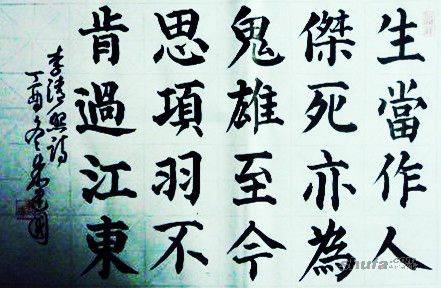 生當作人
傑死亦為
鬼雄至今
思項羽不
肯過江東
李清照詩
丁亥冬
shufa